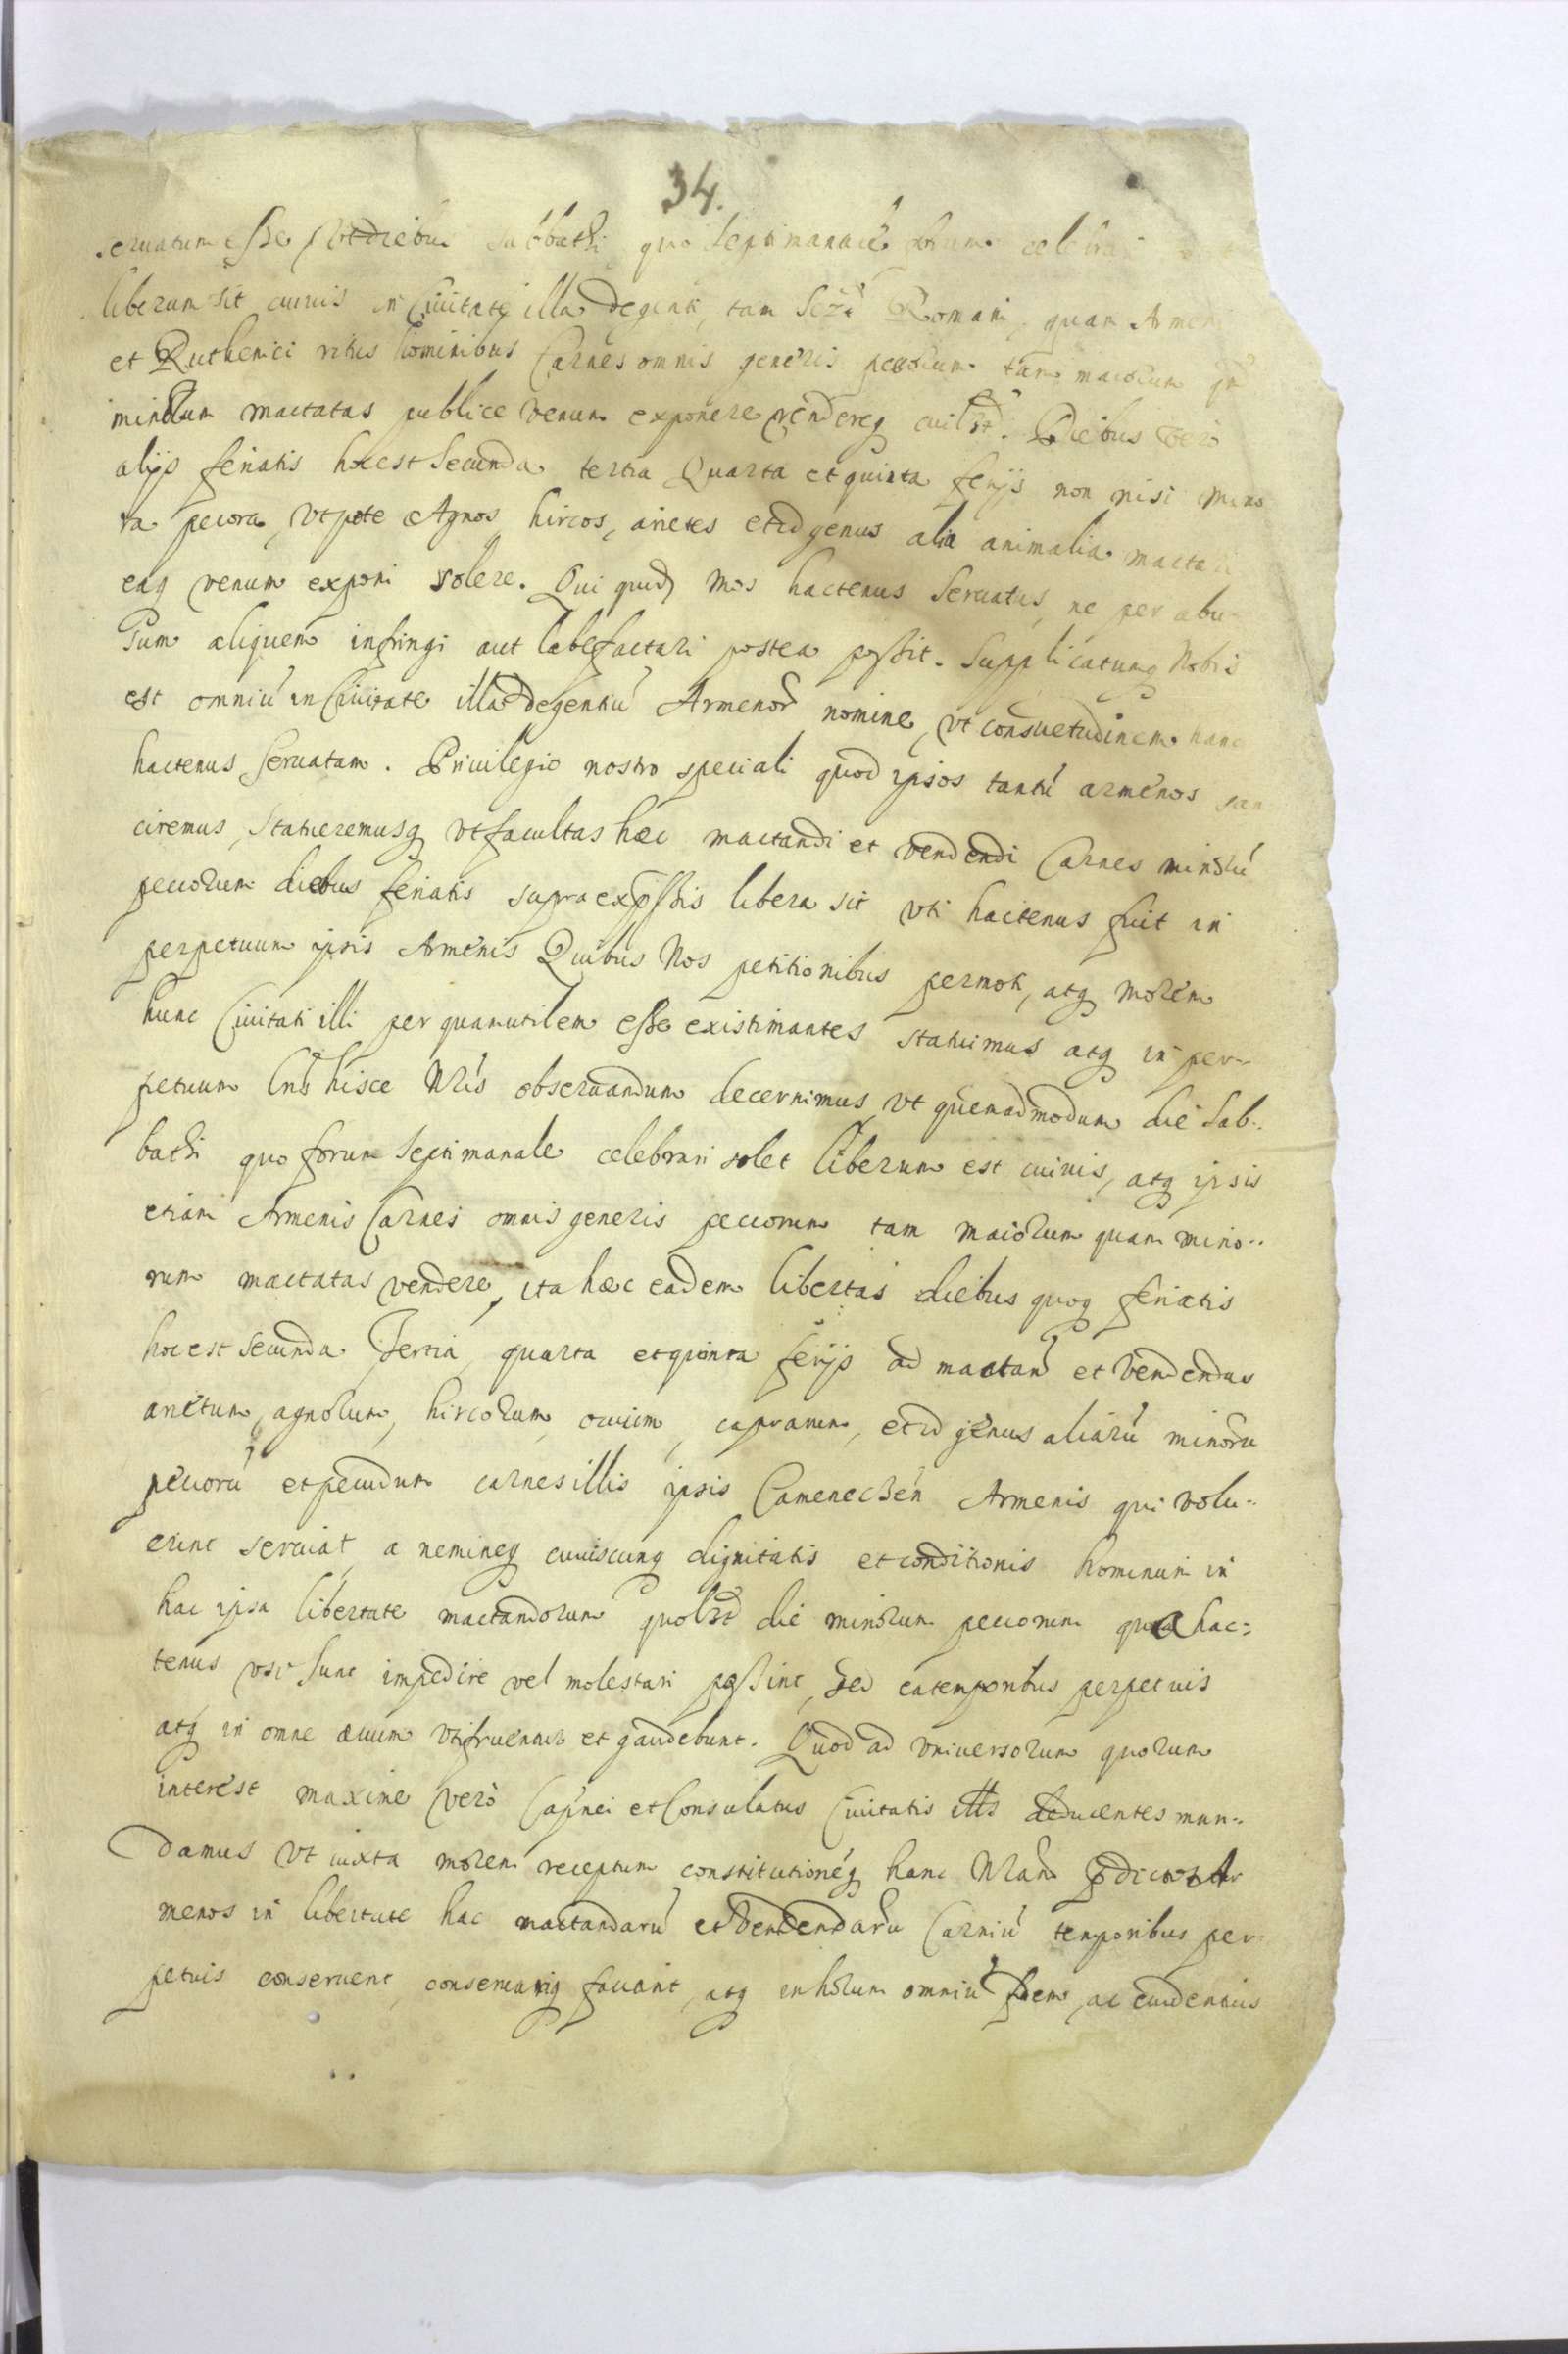 34.
eruatum esse, vt diebus sabbathi quo septimanale forum celebrari
liberum sit cuiuis in Ciuitate illa degenti, tam Romani, quam Armeni
et Ruthenici ritus hominibus Carnes omnis generis pecorum tam maiorum
minorum mactatas publice venum exponere vendereq cuilibet. Diebus vero
alijs feriatis hoc est secunda tertia Quarta et quinta ferijs non nisi mino
ra pecora, vtpote Agnos hircos, arietes et id genus alia animalia mactari
eaq venum exponi solere. Qui quidem mos hactenus seruatus, ne per abu-
sum aliquem infringi aut labefactari postea possit. Supplicatumq Nobis
est omniu in Ciuitate illa degentiu Armenor nomine, vt consuetudinem hanc
hactenus seruatam. Priuilegio nostro speciali quod ipsos tantu armenos san
ciremus, statueremusq vt facultas hæc mactandi et vendendi Carnes minoru
pecorum diebus feriatis supra expssis libera sit vti hactenus fuit in
perpetuum ipsis Armenis Quibus Nos petitionibus permoti, atq morem
hunc Ciuitati illi per quam utilem esse existimantes statuimus atq in per-
petuum Lris hisce Nris obseruandum decernimus, vt quemadmodum die Sab-
bathi quo forum septimanale celebrari solet liberum est cuiuis, atq ipsis
etiam Armenis Carnes omnis generis pecorum tam maiorum quam mino-
rum mactatas vendere, ita hæc eadem libertas diebus quoq feriatis
hoc est secunda Tertia, quarta et quinta ferijs ad mactand et vendendas
arietum, agnorum, hircorum, ouium, caprarum, et id genus aliaru minoru
pecoru et pecudum carnes illis ipsis Camenecen Armenis qui volu-
erint seruiat, a nemineq cuiuscunq dignitatis et conditionis hominum in
hac ipsa libertate mactandorum quolibet die minorum pecorum qua hac-
tenus vsi sunt impedire vel molestari possint, sed ea temporibus perpetuis
atq in omne æuum vti fruentur et gaudebunt. Quod ad vniuersorum quorum
interest maxime vero Capnei et Consulatus Ciuitatis ills deducentes man-
damus vt iuxta morem receptum constitutioneq hanc Nram pdictos Ar
menos in libertate hac mactandaru et vendendaru Carniu temporibus per-
petuis conseruent, conseruariq faciant, atq in horum omniu fidem, ac euidentius